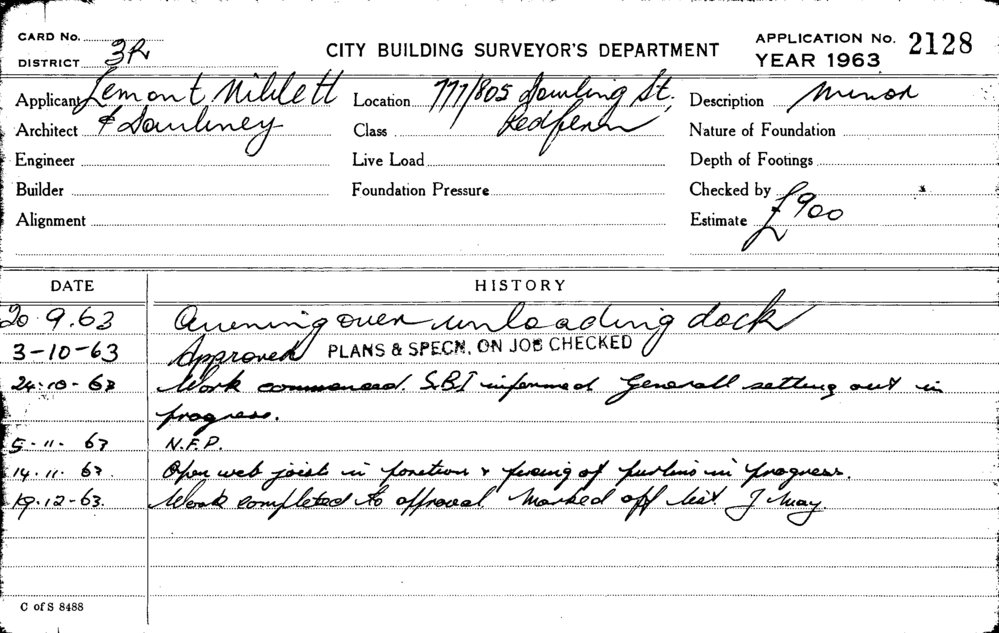 CARD No.
DISTRICT 3R
CITY BUILDING SURVEYOR'S DEPARTMENT
APPLICATION No. 2128
YEAR 1963
Applicant Lemont Niblett
Location 777/805 Dowling St.
Description Minor
Architect & Dawbney
Class Redfern
Nature of Foundation
Engineer
Live Load
Depth of Footings
Builder
Foundation Pressure
Checked by
Alignment
Estimate £900
DATE
HISTORY
20.9.63 Awning over unloading dock
3-10-63 Approved PLANS & SPECN. ON JOB CHECKED
24.10-63 Work commenced. S.B.I informed Generall setting out in
progress.
5-11-63 N.F.P.
14.11.63. Open web joists in position & fixing of purlins in progress.
19.12-63. Work completed to approval. Marked off list J May.
C of S 8488